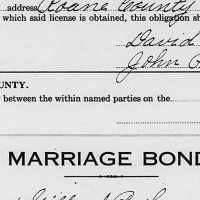 address Roane County
which said license is obtained, this obligation sh
David
John
UNTY.
between the within named parties on the
MARRIAGE BOND